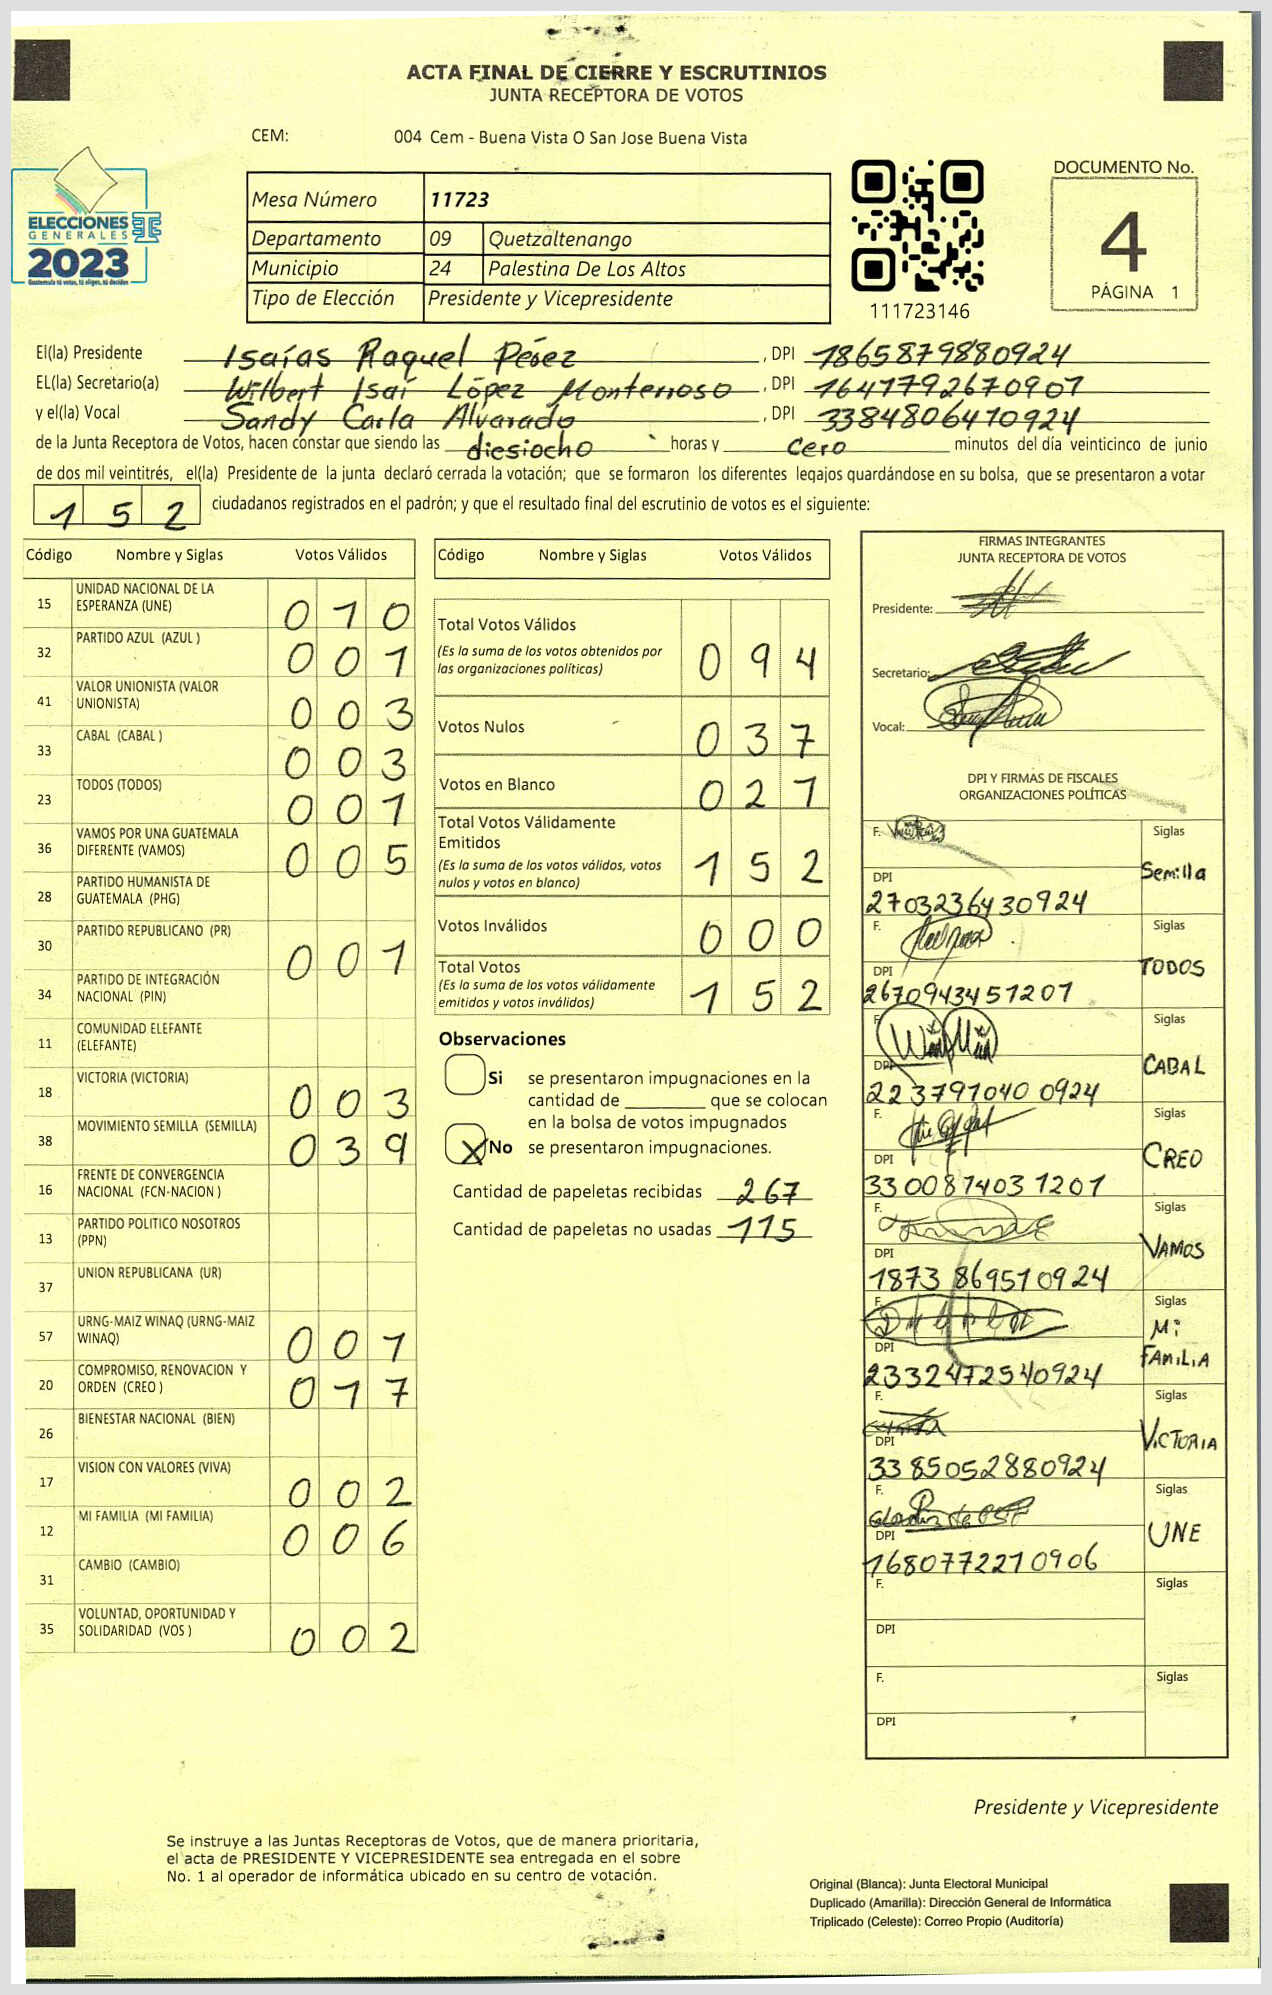 ACTA FINAL DE CIERRE Y ESCRUTINIOS
JUNTA RECEPTORA DE VOTOS
CEM: 004 Cem - Buena Vista O San Jose Buena Vista
ELECCIONES
GENERALES
2023
Guatemala tú votas, tú eliges, tú decides
Mesa Número 11723
Departamento 09 Quetzaltenango
Municipio 24 Palestina De Los Altos
Tipo de Elección Presidente y Vicepresidente
111723146
DOCUMENTO No.
4
PÁGINA 1
El(la) Presidente Isaías Raquel Pérez, DPI 1865879880924
EL(la) Secretario(a) Wilbert Isaí López Monterroso, DPI 1641792670901
y el(la) Vocal Sandy Carla Alvarado, DPI 3384806410924
de la Junta Receptora de Votos, hacen constar que siendo las diesiocho horas y cero minutos del día veinticinco de junio
de dos mil veintitrés, el(la) Presidente de la junta declaró cerrada la votación; que se formaron los diferentes legajos guardándose en su bolsa, que se presentaron a votar
152 ciudadanos registrados en el padrón; y que el resultado final del escrutinio de votos es el siguiente:
Código Nombre y Siglas Votos Válidos
15 UNIDAD NACIONAL DE LA ESPERANZA (UNE) 010
32 PARTIDO AZUL (AZUL ) 001
41 VALOR UNIONISTA (VALOR UNIONISTA) 003
33 CABAL (CABAL ) 003
23 TODOS (TODOS) 001
36 VAMOS POR UNA GUATEMALA DIFERENTE (VAMOS) 005
28 PARTIDO HUMANISTA DE GUATEMALA (PHG)
30 PARTIDO REPUBLICANO (PR) 001
34 PARTIDO DE INTEGRACIÓN NACIONAL (PIN)
11 COMUNIDAD ELEFANTE (ELEFANTE)
18 VICTORIA (VICTORIA) 003
38 MOVIMIENTO SEMILLA (SEMILLA) 039
16 FRENTE DE CONVERGENCIA NACIONAL (FCN-NACION )
13 PARTIDO POLITICO NOSOTROS (PPN)
37 UNION REPUBLICANA (UR)
57 URNG-MAIZ WINAQ (URNG-MAIZ WINAQ) 001
20 COMPROMISO, RENOVACION Y ORDEN (CREO ) 017
26 BIENESTAR NACIONAL (BIEN)
17 VISION CON VALORES (VIVA) 002
12 MI FAMILIA (MI FAMILIA) 006
31 CAMBIO (CAMBIO)
35 VOLUNTAD, OPORTUNIDAD Y SOLIDARIDAD (VOS ) 002
Código Nombre y Siglas Votos Válidos
Total Votos Válidos 094
(Es la suma de los votos obtenidos por
las organizaciones políticas)
Votos Nulos 037
Votos en Blanco 021
Total Votos Válidamente
Emitidos 152
(Es la suma de los votos válidos, votos
nulos y votos en blanco)
Votos Inválidos 000
Total Votos 152
(Es la suma de los votos válidamente
emitidos y votos inválidos)
Observaciones
Si se presentaron impugnaciones en la
cantidad de ________ que se colocan
en la bolsa de votos impugnados
X No se presentaron impugnaciones.
Cantidad de papeletas recibidas 267
Cantidad de papeletas no usadas 115
FIRMAS INTEGRANTES
JUNTA RECEPTORA DE VOTOS
Presidente:
Secretario:
Vocal:
DPI Y FIRMAS DE FISCALES
ORGANIZACIONES POLÍTICAS
F. Siglas Semilla
DPI 2703236430924
F. Siglas TODOS
DPI 2670943451201
F. Siglas CABAL
DPI 2237910400924
F. Siglas CREO
DPI 3300814031201
F. Siglas VAMOS
DPI 1873869510924
F. Siglas Mi FAMILIA
DPI 2332472540924
F. Siglas VICTORIA
DPI 3385052880924
F. Siglas UNE
DPI 1680772210906
F. Siglas
DPI
F. Siglas
DPI
Presidente y Vicepresidente
Se instruye a las Juntas Receptoras de Votos, que de manera prioritaria,
el acta de PRESIDENTE Y VICEPRESIDENTE sea entregada en el sobre
No. 1 al operador de informática ubicado en su centro de votación.
Original (Blanca): Junta Electoral Municipal
Duplicado (Amarilla): Dirección General de Informática
Triplicado (Celeste): Correo Propio (Auditoría)